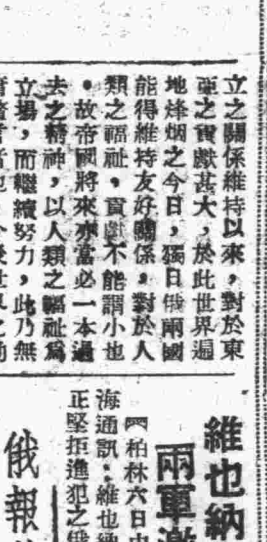 立之關係維持以來，對於東
亞之貢獻甚大，於此世界遍
地烽烟之今日，獨日俄兩國
能得維持友好關係，對於人
類之福祉，貢獻不能謂小也
。故帝國將來亦當必一本過
去之精神，以人類之福祉爲
立場，而繼續努力，此乃無
維也納
兩軍激
柏林六日中
海通訊：維也納
正堅拒進犯之俄
俄報